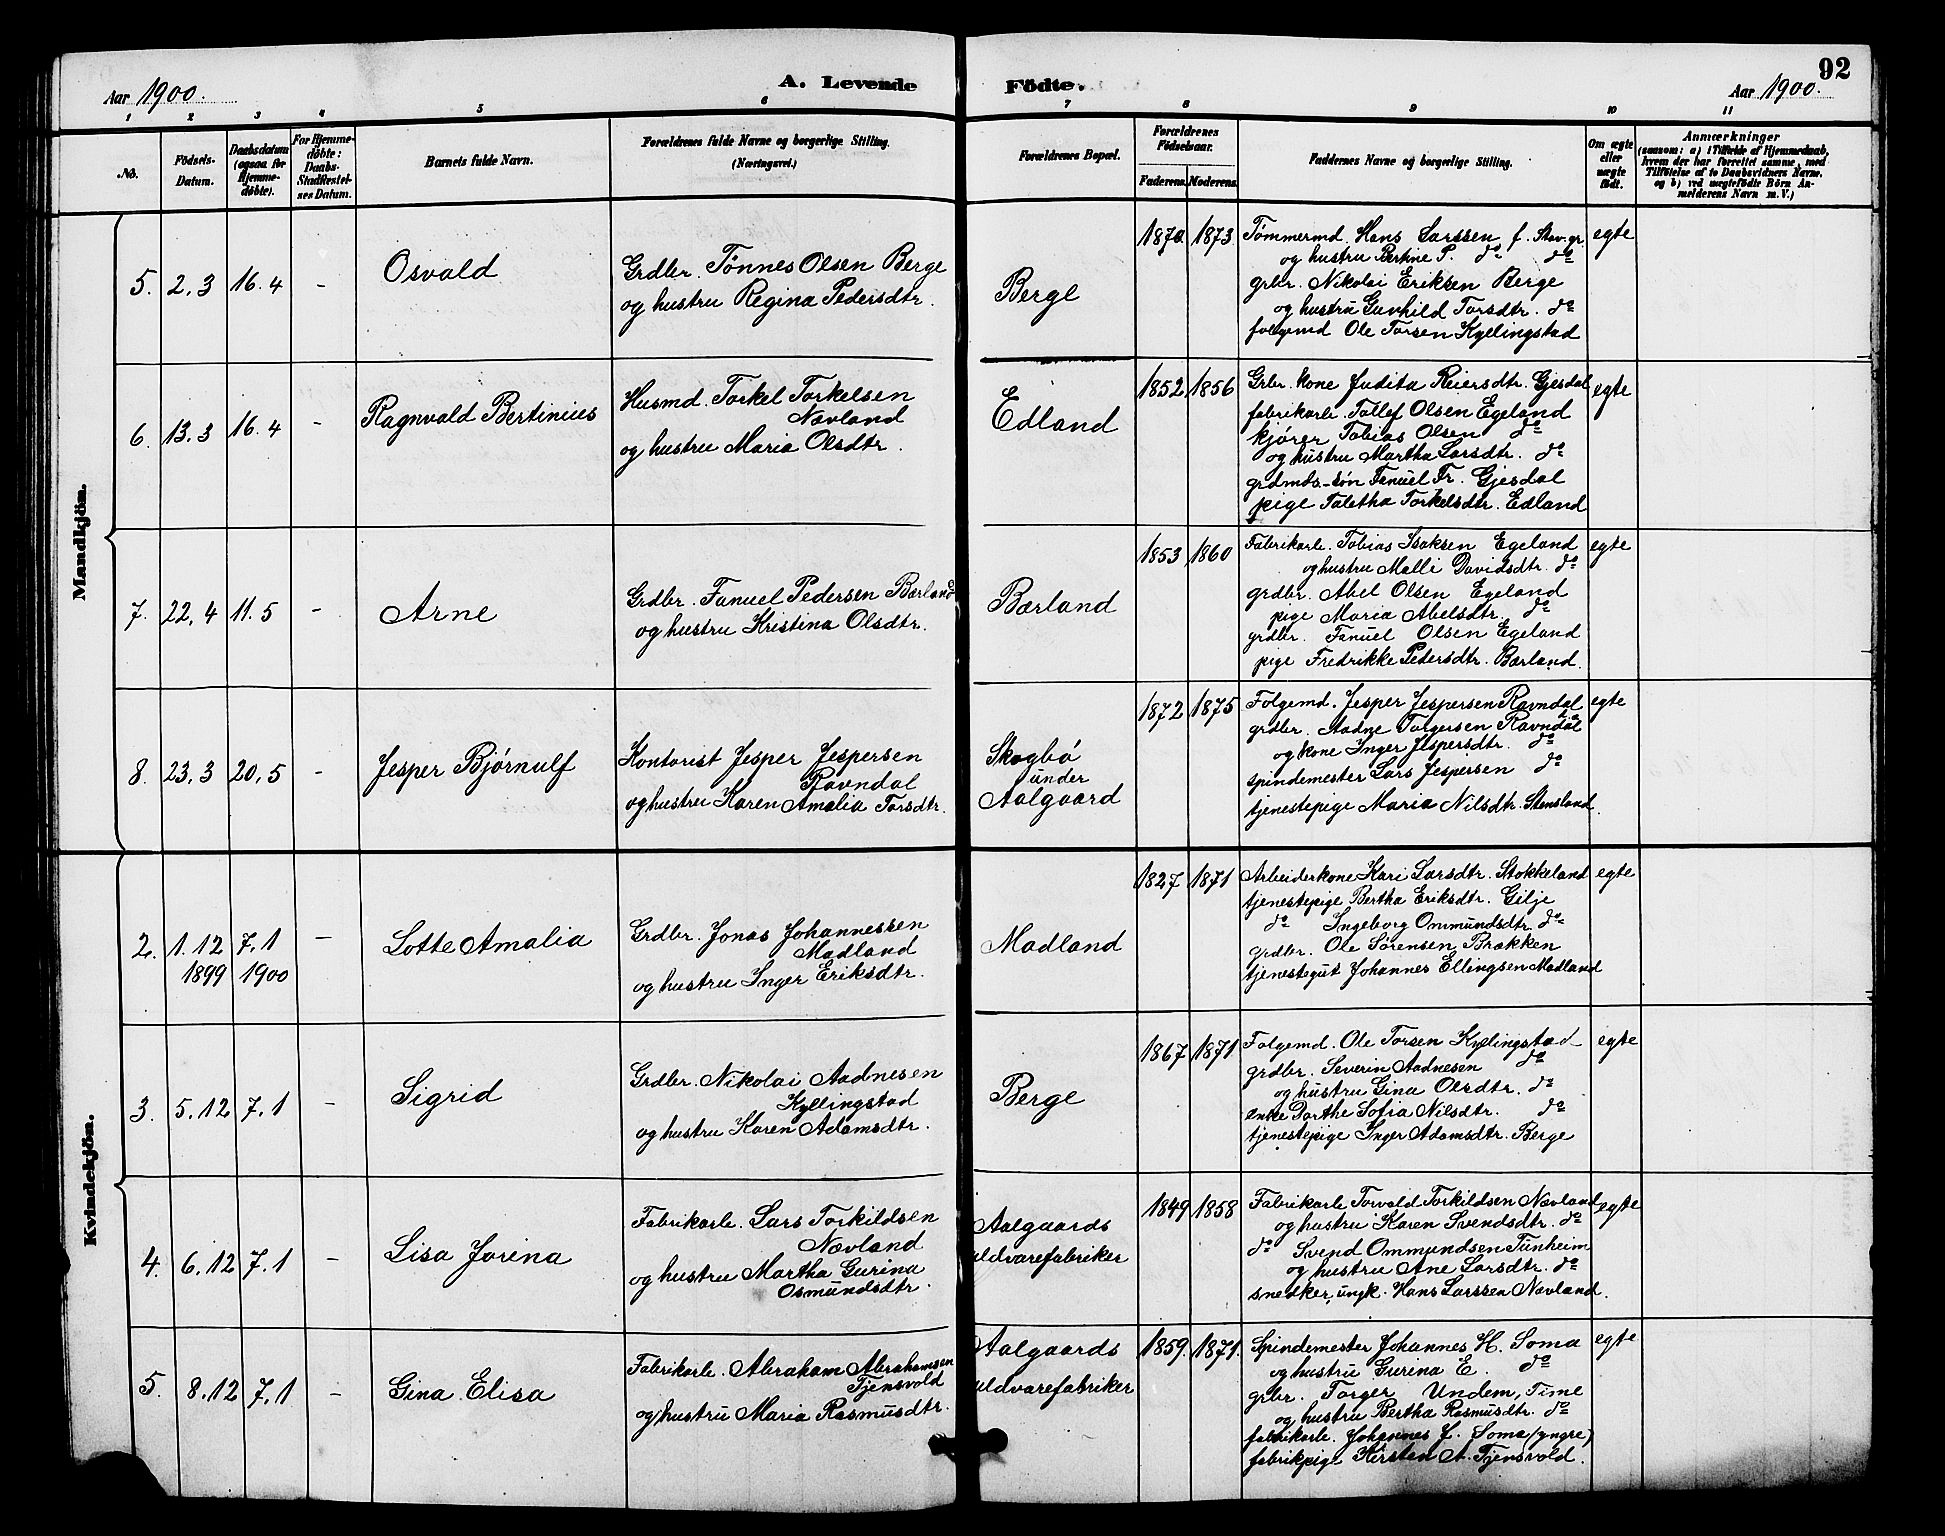 92
Aar 1900.
A. Levende Födte.
Aar 1900.
1 2 3 4 5 6 7 8 9 10 11
No.
Födsels-
Datum.
Daabsdatum
(ogsaa for
Hjemme-
döbte).
For Hjemme-
döbte:
Daabs-
Stadfæstel-
ses Datum.
Barnets fulde Navn.
Forældrenes fulde Navne og borgerlige Stilling.
(Næringsvei.)
Forældrenes Bopæl.
Forældrenes
Födselsaar.
Faderens. Moderens.
Faddernes Navne og borgerlige Stilling.
Om ægte
eller
uægte
födt.
Anmærkninger
(saasom: a) i Tilfælde af Hjemmedaab,
hvem der har forrettet samme, med
Tilföielse af to Daabsvidners Navne,
og b) ved uægtefödte Börn An-
melderens Navn m. V.)
Mandkjön.
5. 2.3 16.4 - Osvald
Grdbr. Tönnes Olsen Berge
og hustru Regina Pedersdtr.
Berge
1870. 1873.
Tømmermd. Hans Larssen f. Stav.gr.
og hustru Bertine P. do do
grbr. Nikolai Eriksen Berge
og hustru Gunhild Torsdtr. do
folgemd Ole Torsen Kyllingstad
egte
6. 13.3 16.4 - Ragnvald Bertinius
Husmd. Torkel Torkelsen
Nævland
og hustru Maria Olsdtr.
Edland
1852 1856
Grbr. kone Judita Reiersdtr. Gjesdal
fabrikarb. Tollef Olsen Egeland
kjører Tobias Olsen do
og hustru Martha Larsdtr. do
grdmds.-søn Fanuel Fr. Gjesdal
pige Taletha Torkelsdtr. Edland
egte
7. 22.4 11.5 - Arne
Grdbr. Fanuel Pedersen Bærland
og hustru Kristina Olsdtr.
Bærland
1853 1860
Fabrikarb. Tobias Isaksen Egeland
og hustru Malli Davidsdtr. do
grdbr. Abel Olsen Egeland
pige Maria Abelsdtr. do
grdbr. Fanuel Olsen Egeland
pige Fredrikke Pedersdtr. Bærland.
egte
8. 23.3 20.5 - Jesper Bjørnulf
Kontorist Jesper Jespersen
Ravndal
og hustru Karen Amalia Torsdtr.
Skogbø
under
Aalgaard
1872 1875
Folgemd. Jesper Jespersen Ravndal
grdbr. Aadne Torgersen Ravndal
og kone Inger Jespersdtr. do
spindemester Lars Jespersen do
tjenestepige Maria Nilsdtr. Stensland.
egte
Kvindekjön.
2. 1.12 7.1 - Lotte Amalia
1899 1900
Grdbr. Jonas Johannessen
Madland
og hustru Inger Eriksdtr.
Madland
1827 1871
Arbeiderkone Kari Larsdtr. Stokkeland
tjenestepige Bertha Eriksdtr. Gilje
do Ingeborg Ommundsdtr. do
grdbr. Ole Sørensen Brækken
tjenestegut Johannes Ellingsen Madland
egte
3. 5.12 7.1 - Sigrid
Grdbr. Nikolai Aadnesen
Kyllingstad
og hustru Karen Adamsdtr.
Berge
1867 1871
Folgemd. Ole Torsen Kyllingstad
grdbr. Severin Aadnesen do
og hustru Gina Olsdtr. do
enke Dorthe Sofia Nilsdtr. do
tjenestepige Inger Adamsdtr. Berge
egte
4. 6.12 7.1 - Lisa Jorina
Fabrikarb. Lars Torkildsen
Nævland
og hustru Martha Gurina
Osmundsdtr.
Aalgaards
uldvarefabriker
1849 1858
Fabrikarb Torvald Torkildsen Nævland
og hustru Karen Svendsdtr. do
do Svend Ommundsen Tunheim
og hustru Ane Larsdtr. do
snedker, ungk. Hans Larssen Nævland.
egte
5. 8.12 7.1 - Gina Elisa
Fabrikarb. Abraham Abrahamsen
Tjensvold
og hustru Maria Rasmusdtr.
Aalgaards
uldvarefabriker
1859. 1871.
Spindemester Johannes H. Soma
og hustru Gurina E. do
grbr. Torger Undem, Time
og hustru Bertha Rasmusdtr. do
fabrikarb. Johannes J. Soma (yngre)
fabrikpige Kirsten A. Tjensvold.
egte